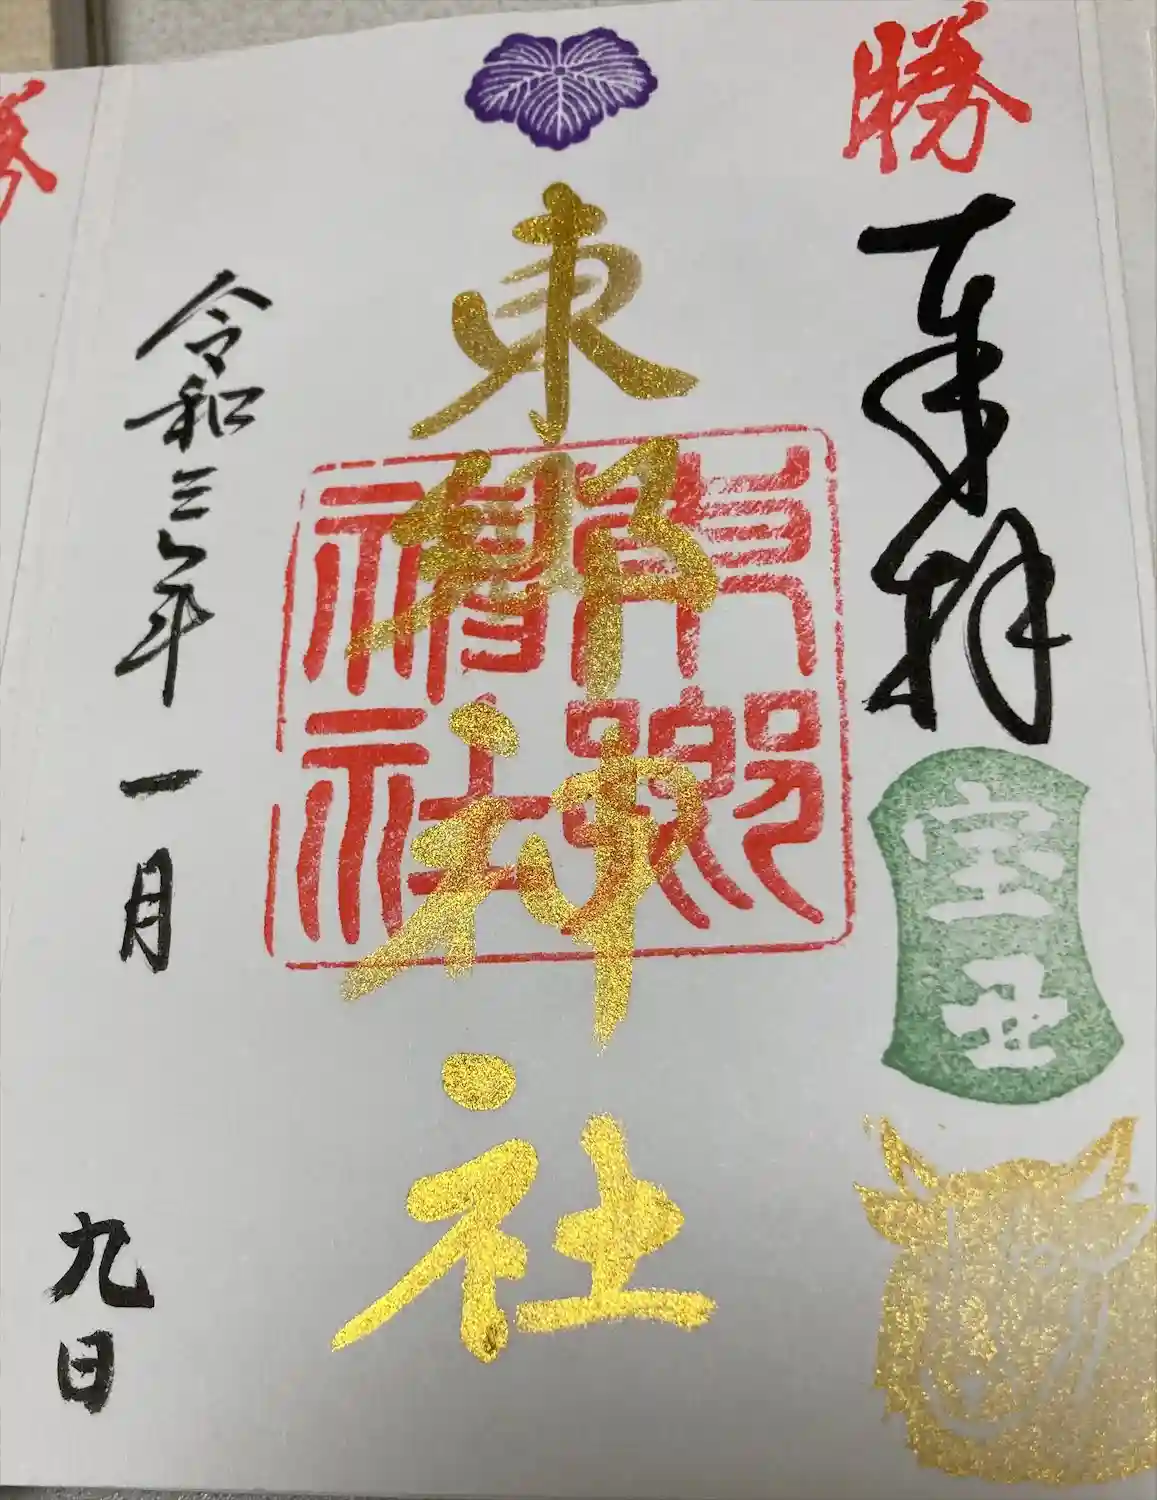 勝
奉拝
宝丑
東郷神社
東郷神社
令和三年一月九日
勝